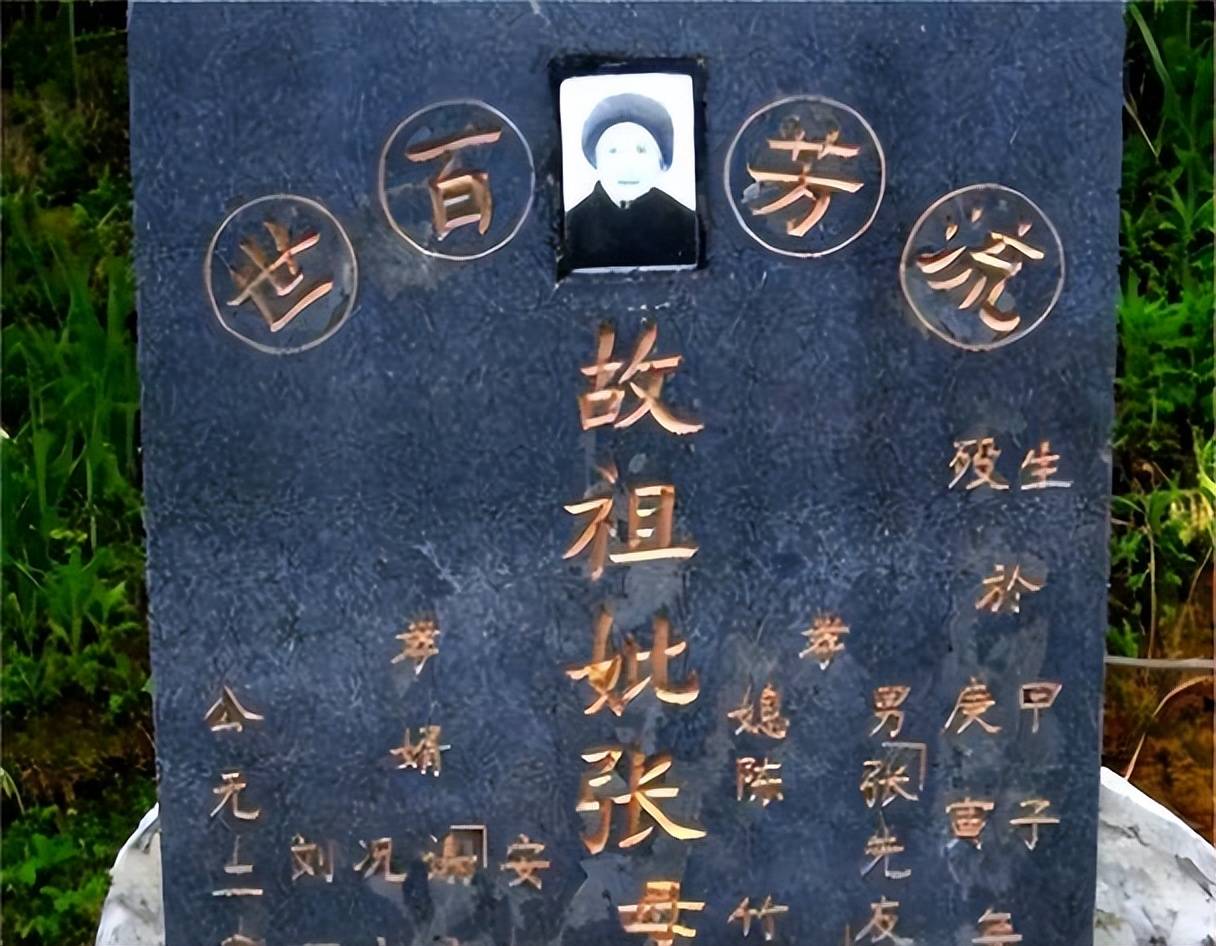 流芳百世
生殁
於
甲子
庚寅
年
孝
男张先友
媳陈竹
故祖妣张母
孝婿
安
况
刘
公元二